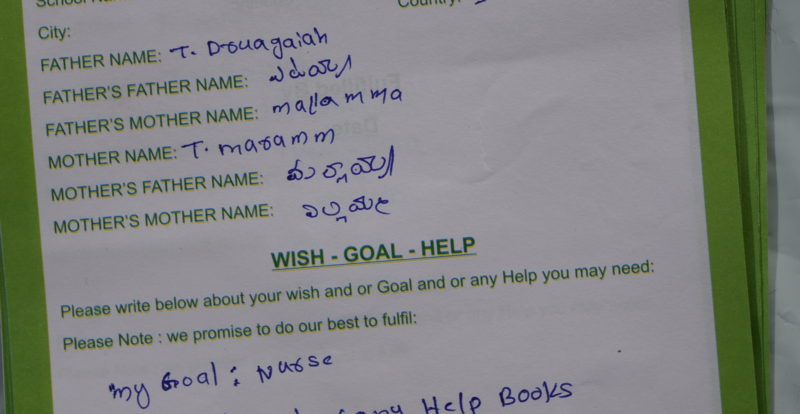 City:
FATHER NAME: T. Douagaiah
FATHER'S FATHER NAME:
FATHER'S MOTHER NAME: mallamma
MOTHER NAME: T. maramm
MOTHER'S FATHER NAME:
MOTHER'S MOTHER NAME:
WISH - GOAL - HELP
Please write below about your wish and or Goal and or any Help you may need:
Please Note : we promise to do our best to fulfil:
my Goal : Nurse
any Help Books